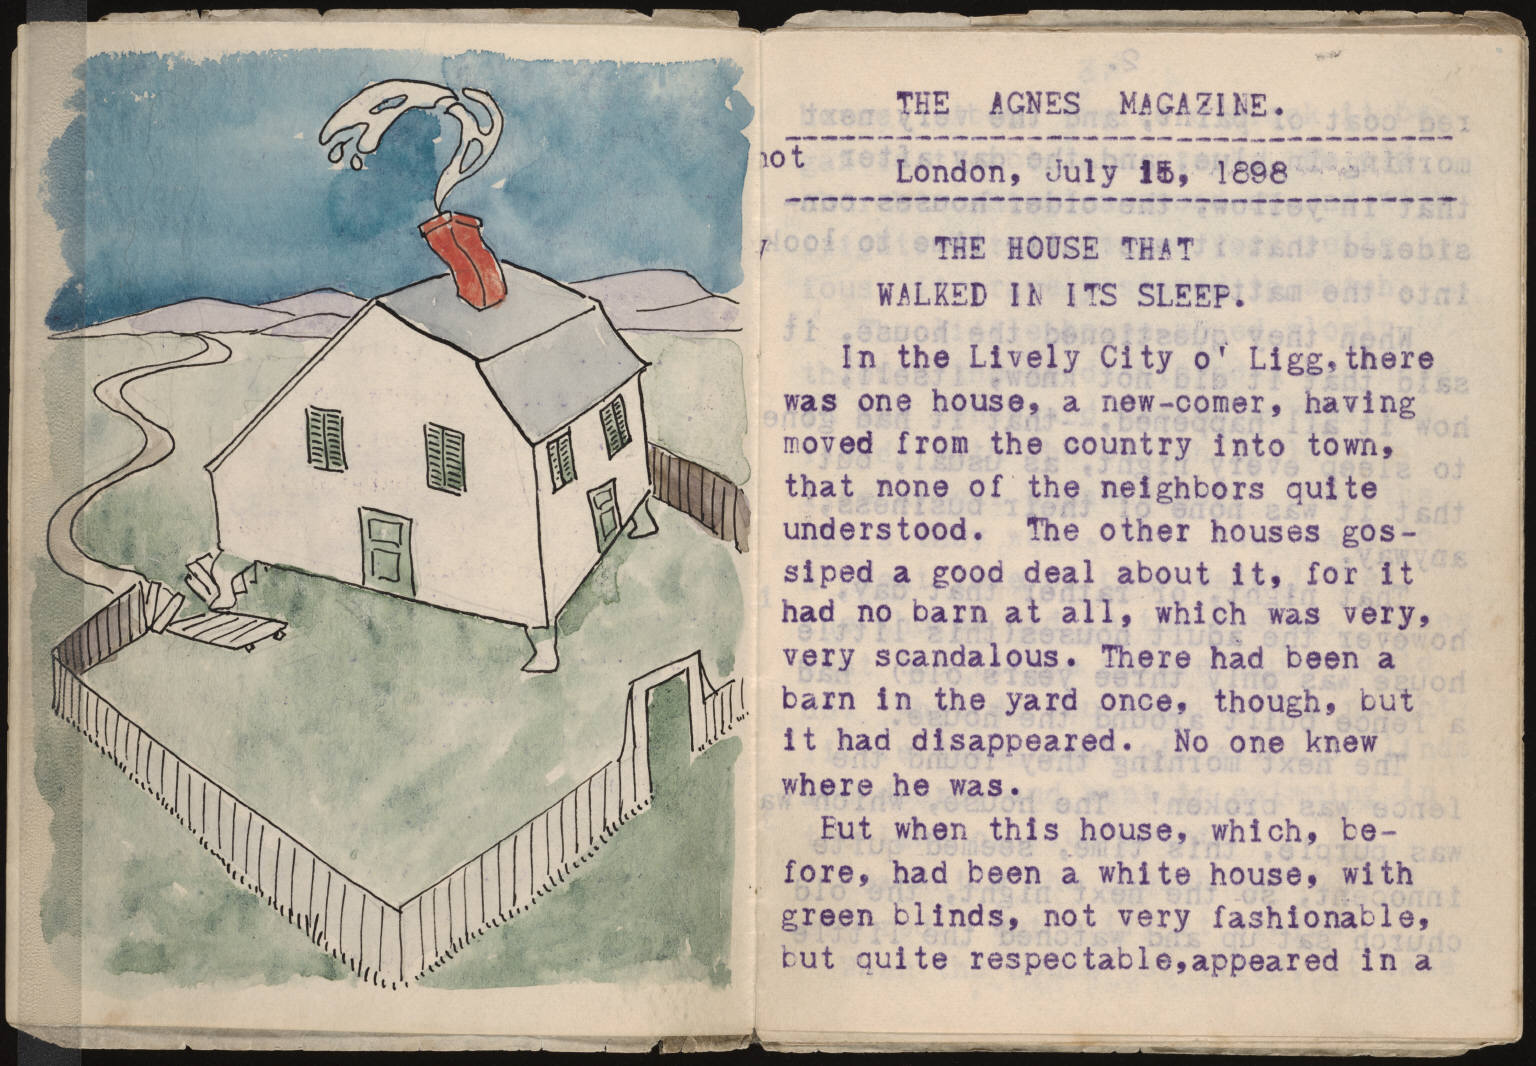 THE AGNES MAGAZINE.
not
London, July 15, 1898
THE HOUSE THAT
WALKED IN ITS SLEEP.
In the Lively City o' Ligg, there
was one house, a new-comer, having
moved from the country into town,
that none of the neighbors quite
understood. The other houses gos-
siped a good deal about it, for it
had no barn at all, which was very,
very scandalous. There had been a
barn in the yard once, though, but
it had disappeared. No one knew
where he was.
But when this house, which, be-
fore, had been a white house, with
green blinds, not very fashionable,
but quite respectable,appeared in a